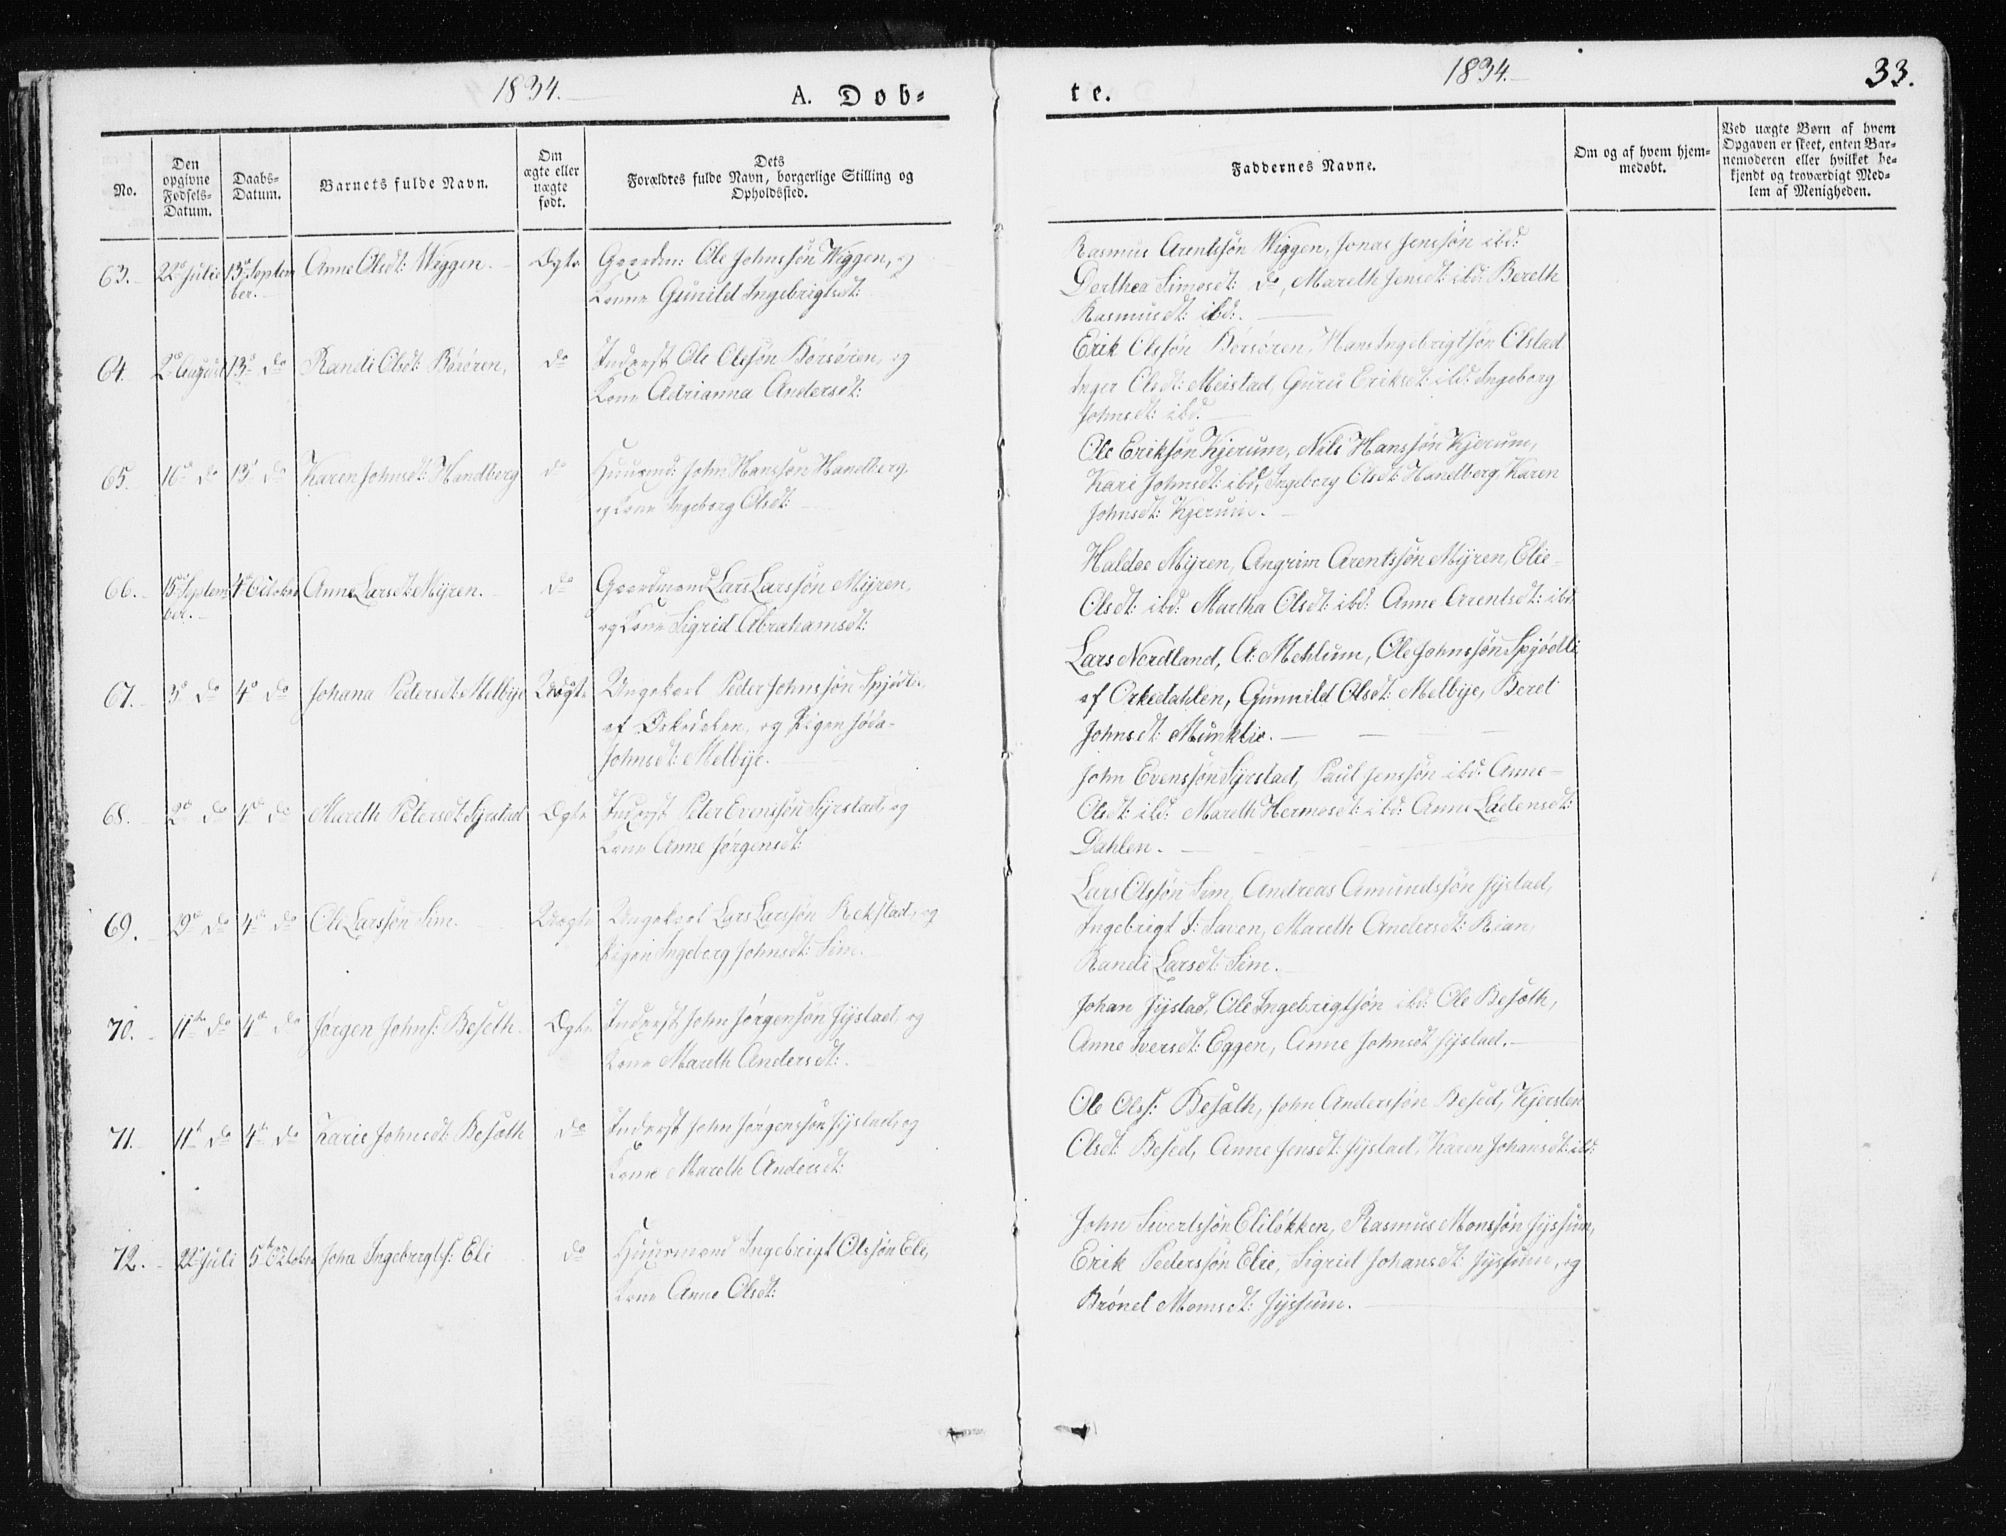 1834.
A. Døb-
te.
1834.
33.
No.
Den
opgivne
Fødsels-
Datum.
Daabs-
Datum.
Barnets fulde Navn.
Om
ægte eller
uægte
født.
Dets
Forældres fulde Navn, borgerlige Stilling og
Opholdssted.
Faddernes Navne.
Om og af hvem hjem-
medøbt.
Ved uægte Børn af hvem
Opgaven er skeet, enten Bar-
nemoderen eller hvilket be-
kjendt og troværdigt Med-
lem af Menigheden.
63. 22de Julie 13de Septem Anne Olsdt: Wiggen. Ægte Gaardm: Ole Johnssøn Wiggen, og
ber. Kone Gunild Ingebrigtsdt:
Rasmus Arentssøn Wiggen, Jonas Jenssøn ibd:
Dorthea Simosdt: do, Mareth Jensdt: ibd: Bereth
Rasmusdt: ibd:.
64. 2de August 13de do Randi Olsdt: Børsøren, do Inderst Ole Olssøn Børsøren, og
Kone Adrianna Andersdt:
Erik Olssøn Børsøren, Hans Ingebrigtsøn Olstad
Inger Olsdt: Meistad, Guru Eriksdt: ibd: Ingeborg
Johnsdt: ibd.
65. 16de do 13de do Karen Johnsdt: Handberg do Huusmd: John Hanssøn Handberg,
og Kone Ingeborg Olsdt:
Ole Eriksøn Kjerum, Nils Hanssøn Kjerum,
Kari Johnsdt: ibd, Ingeborg Olsdt: Handberg, Karen
Johnsdt: Kjerum.
66. 15de Septem 4de October Anne Larsdt: Mÿren. do Gaardmand Lars Larssøn Mÿren,
ber. og Kone Sigrid Abrahamsdt:
Haldoe Mÿren, Angrim Arentssøn Mÿren, Elie
Olsdt: ibd: Martha Olsdt: ibd: Anne Arentsdt: ibd.
67. 3de do 4de do Johana Pedersdt: Melbÿe Uægte Ungekarl Peder Johnssøn Spjødli,
af Orkedalen, og Pigen
Johnsdt: Melbÿe.
Lars Nordland, A: Mehlum, Ole Johnssøn Spjødli
af Orkedahlen, Gunnild Olsdt: Melbÿe, Beret
Johnsdt: Munklie.
68. 2de do 4de do Mareth Petersdt: Sÿrstad Ægte Inderst Peter Evenssøn Sÿrstad, og
Kone Anne Jørgensdt:
John Evenssøn Sÿrstad, Paul Jenssøn ibd: Anne
Olsdt: ibd: Mareth Hermosdt: ibd: Anne
Dahlen.
69. 9de do 4de do Ole Larssøn Sim. Uægte Ungekarl Lars Larssøn Rekstad, og
Pigen Ingeborg Johnsdt: Sim.
Lars Olssøn Sim, Andreas Amundssøn Jÿstad,
Ingebrigt J: Saven, Mareth Andersdt: Rian,
Randi Larsdt: Sim.
70. 11te do 4de do Jørgen Johns: Beseth. Ægte Inderst John Jørgensøn Jÿstad, og
Kone Mareth Andersdt:.
Johan Jÿstad, Ole Ingebrigtsøn ibd: Ole Besæth,
Anne Iversdt: Eggen, Anne Johnsdt Jÿstad.
71. 11te do 4de do Karie Johnsdt: Besæth do Inderst John Jørgenssøn Jÿstad, og
Kone Mareth Andersdt:
Ole Ols: Besæth, John Anderssøn Besed, Kjersten
Olsdt: Besed, Anne Jensdt: Jÿstad, Karen Johansdt: ibd:
72. 22de Juli 5te October John Ingebregts: Eli do Huusmand Ingebrigt Olssøn Eli,
Kone Anne Olsdt:
John Sivertssøn Eliløkken, Rasmus Monssøn Jÿssum,
Erik Pederssøn Elie, Sigrid Johansdt: Jÿssum, og
Brønel Monsdt: Jÿssum.